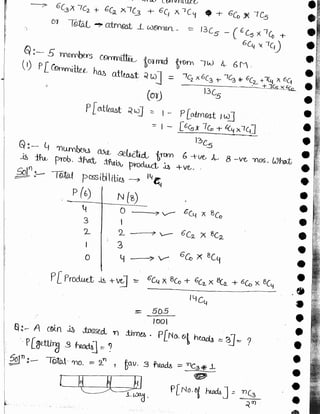 → 6C₃ x 7C₂ + 6C₂ x 7C₃ + 6C₁ x 7C₄ + 6C₀ x 7C₅
(or) Total → atmost 1 women. = 13C₅ - (6C₅ x 7C₀ + 6C₄ x 7C₁)
Q:- 5 members committee formed from 7W & 6M.
(1) P[Committee has atleast 2W] = 7C₂ x 6C₃ + 7C₃ * 6C₂ + 7C₄ x 6C₁ + 7C₅ x 6C₀
13C₅
(or)
P[atleast 2W] = 1 - P[atmost 1W]
= 1 - [6C₅ x 7C₀ + 6C₄ x 7C₁]
13C₅
Q:- 4 numbers are selected from 6 +ve & 8 -ve nos. What
is the prob. that their product is +ve.
Solⁿ:- Total possibilities → 14C₄
P(6) N(8)
4 0 → ✓ 6C₄ x 8C₀
3 1
2 2 → ✓ 6C₂ x 8C₂
1 3
0 4 → ✓ 6C₀ x 8C₄
P[Product is +ve] = 6C₄ x 8C₀ + 6C₂ x 8C₂ + 6C₀ x 8C₄
14C₄
= 505
1001
Q:- A coin is tossed n times. P[No. of heads = 3] = ?
P[getting 3 heads] = ?
Solⁿ:- Total no. = 2ⁿ, fav. 3 heads = nC₃ * 1
H H H
1 way.
P[No. of heads] = nC₃
2ⁿ